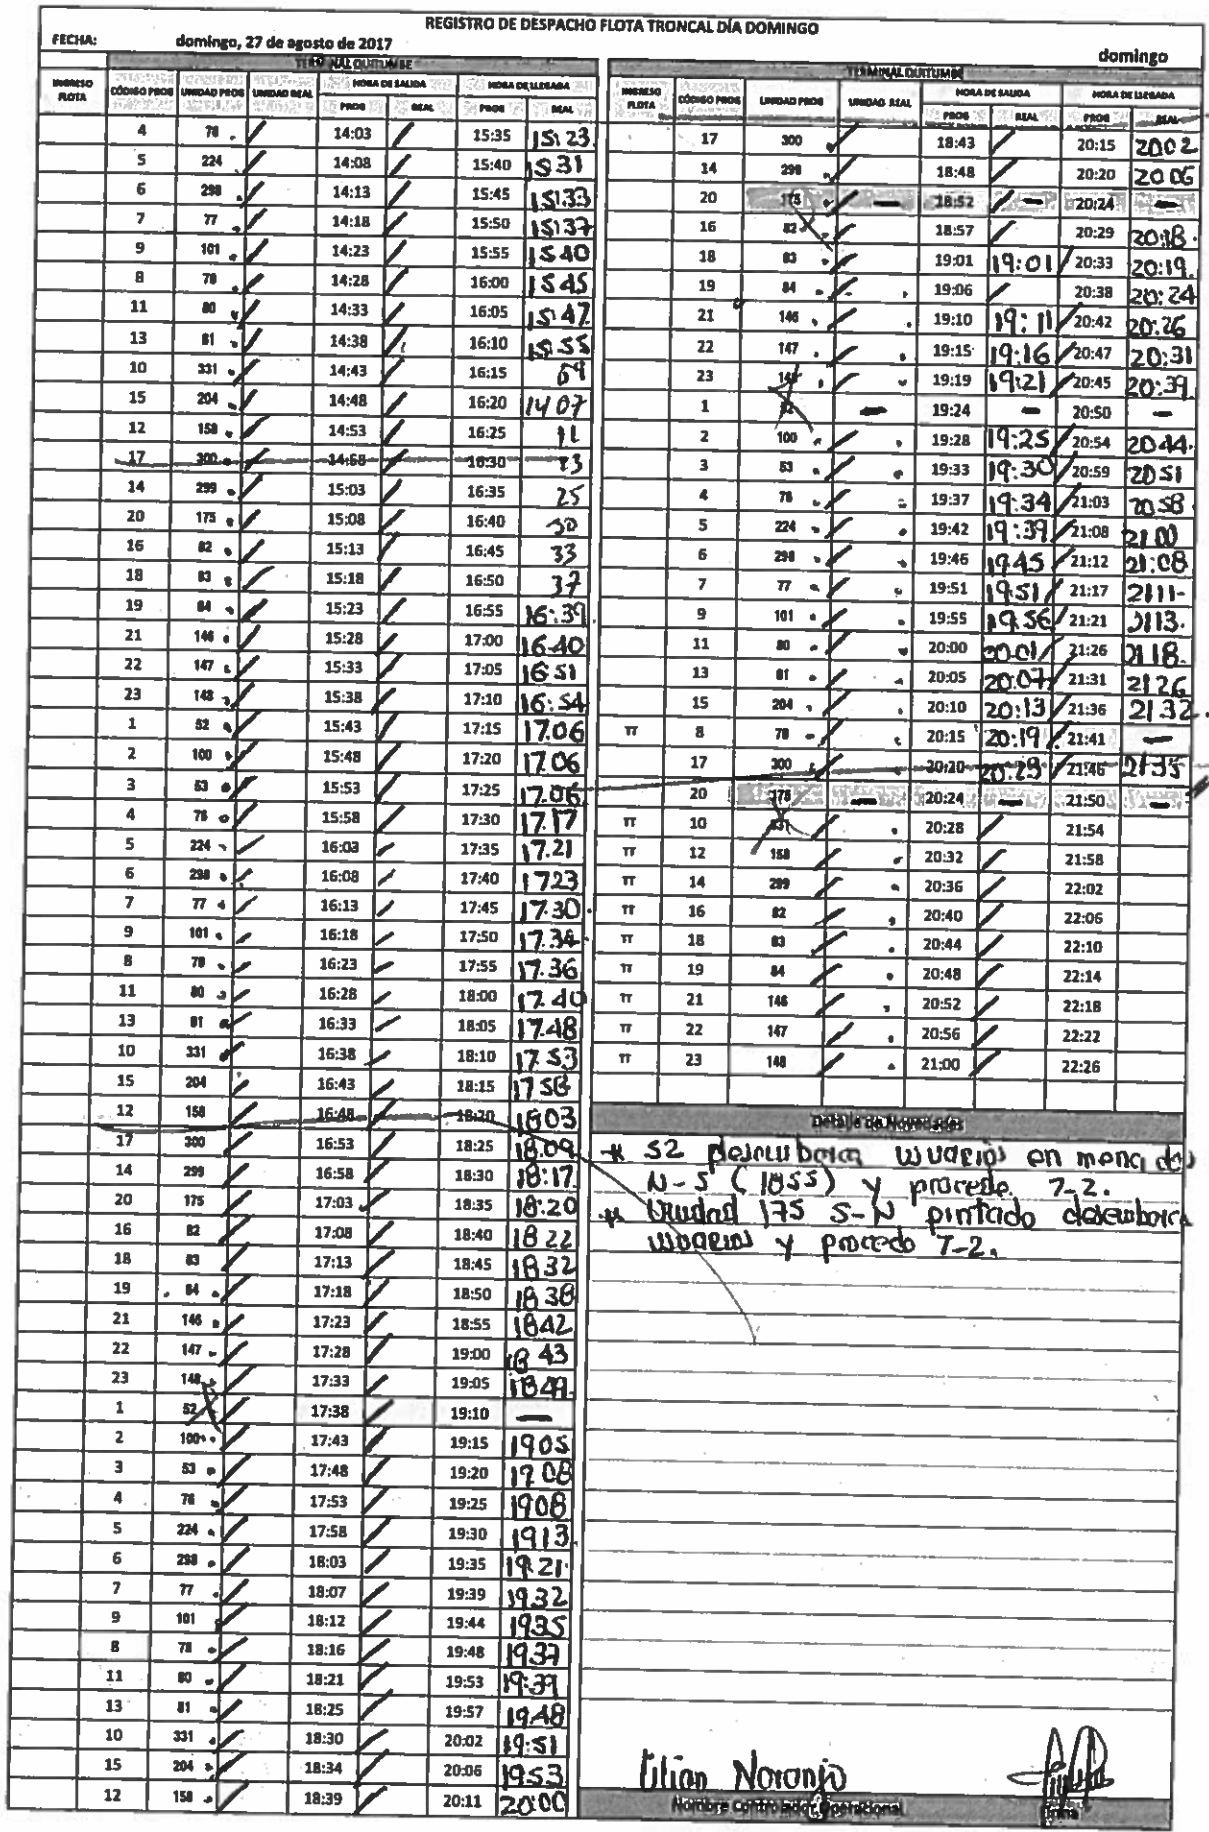 REGISTRO DE DESPACHO FLOTA TRONCAL DÍA DOMINGO
FECHA: domingo, 27 de agosto de 2017 domingo
TERMINAL QUITUMBE
INGRESO FLOTA CÓDIGO PROG UNIDAD PROG UNIDAD REAL HORA DE SALIDA HORA DE LLEGADA
PROG REAL PROG REAL
4 78 14:03 15:35 15:23
5 224 14:08 15:40 15 31
6 298 14:13 15:45 15:33
7 77 14:18 15:50 15:37
9 101 14:23 15:55 15 40
8 78 14:28 16:00 15 45
11 80 14:33 16:05 15:47
13 81 14:38 16:10 15:55
10 331 14:43 16:15 59
15 204 14:48 16:20 14 07
12 158 14:53 16:25 11
17 300 14:58 16:30 23
14 299 15:03 16:35 25
20 175 15:08 16:40 30
16 82 15:13 16:45 33
18 83 15:18 16:50 37
19 84 15:23 16:55 16:39
21 146 15:28 17:00 16 40
22 147 15:33 17:05 16 51
23 148 15:38 17:10 16:54
1 52 15:43 17:15 17.06
2 100 15:48 17:20 17 06
3 53 15:53 17:25 17.06
4 76 15:58 17:30 17.17
5 224 16:03 17:35 17.21
6 298 16:08 17:40 17 23
7 77 16:13 17:45 17.30
9 101 16:18 17:50 17.34
8 78 16:23 17:55 17.36
11 80 16:28 18:00 17.40
13 81 16:33 18:05 17.48
10 331 16:38 18:10 17 53
15 204 16:43 18:15 17 58
12 158 16:48 18:20 18 03
17 300 16:53 18:25 18.09
14 299 16:58 18:30 18:17
20 175 17:03 18:35 18:20
16 82 17:08 18:40 18 22
18 83 17:13 18:45 18 32
19 84 17:18 18:50 18 38
21 146 17:23 18:55 18 42
22 147 17:28 19:00 18 43
23 148 17:33 19:05 18 49
1 52 17:38 19:10 —
2 100 17:43 19:15 19 05
3 53 17:48 19:20 19 08
4 76 17:53 19:25 19 08
5 224 17:58 19:30 19 13
6 298 18:03 19:35 19 21
7 77 18:07 19:39 19.32
9 101 18:12 19:44 19 35
8 78 18:16 19:48 19 37
11 80 18:21 19:53 19:39
13 81 18:25 19:57 19 48
10 331 18:30 20:02 19:51
15 204 18:34 20:06 19 53
12 158 18:39 20:11 20:00
TERMINAL QUITUMBE
INGRESO FLOTA CÓDIGO PROG UNIDAD PROG UNIDAD REAL HORA DE SALIDA HORA DE LLEGADA
PROG REAL PROG REAL
17 300 18:43 20:15 20 02
14 299 18:48 20:20 20 06
20 175 — 18:52 — 20:24 —
16 82 18:57 20:29 20:18
18 83 19:01 19:01 20:33 20:19
19 84 19:06 20:38 20:24
21 146 19:10 19:11 20:42 20:26
22 147 19:15 19:16 20:47 20:31
23 148 19:19 19:21 20:45 20:39
1 52 — 19:24 — 20:50 —
2 100 19:28 19:25 20:54 20 44
3 53 19:33 19:30 20:59 20 51
4 76 19:37 19:34 21:03 20 58
5 224 19:42 19:39 21:08 21 00
6 298 19:46 19 45 21:12 21:08
7 77 19:51 19 51 21:17 21 11
9 101 19:55 19 56 21:21 21 13
11 80 20:00 20 01 21:26 21 18
13 81 20:05 20:07 21:31 21 26
15 204 20:10 20:13 21:36 21 32
TT 8 78 20:15 20:19 21:41 —
17 300 20:20 20:23 21:46 21 35
20 175 — 20:24 — 21:50 —
TT 10 331 20:28 21:54
TT 12 158 20:32 21:58
TT 14 299 20:36 22:02
TT 16 82 20:40 22:06
TT 18 83 20:44 22:10
TT 19 84 20:48 22:14
TT 21 146 20:52 22:18
TT 22 147 20:56 22:22
TT 23 148 21:00 22:26
Detalle de Novedades
* 52 en
N-S (1855) y procede 7-2.
* Unidad 175 S-N pintado
y procedo 7-2.
Lilian Naranjo
Nombre Controlador Operacional Firma